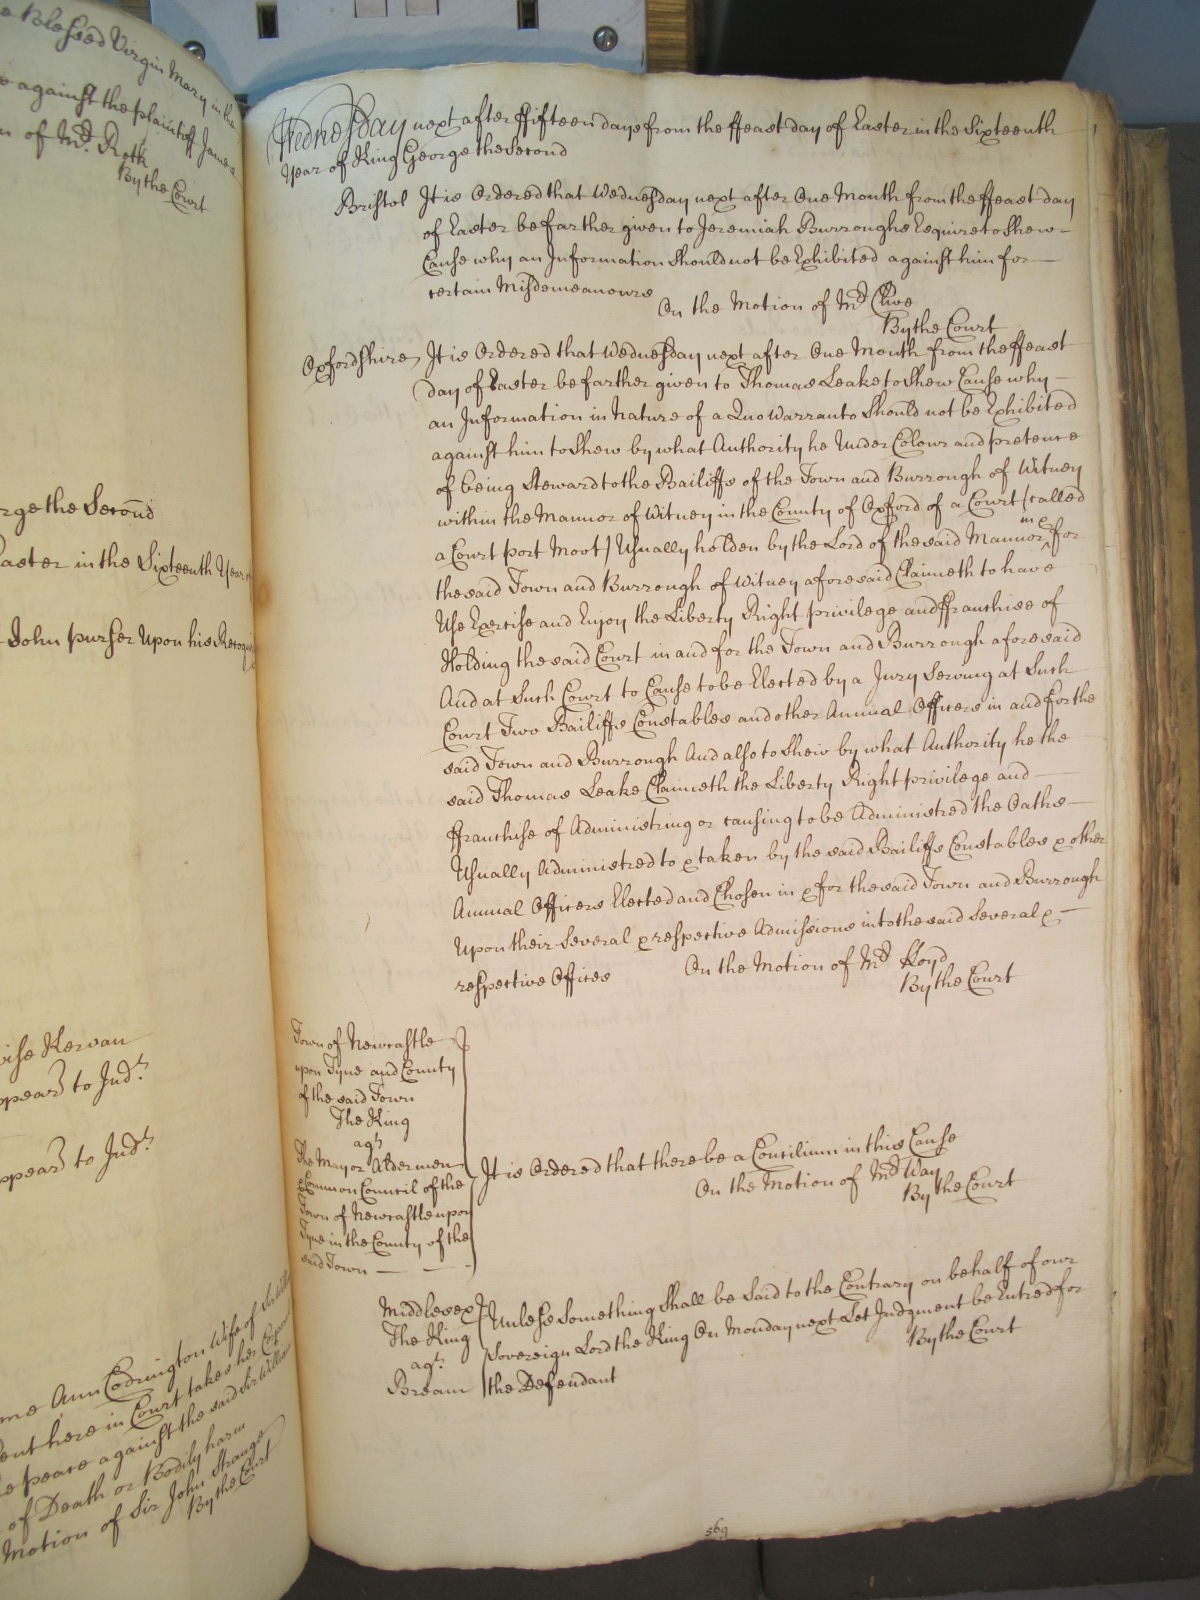 e Blessed Virgin Mary in the
o against the plaintiff James
n of Mr. Roth
By the Court
rge the Second
Easter in the Sixteenth Year of
John purser Upon his Recogn
wise Kervan
ppear to Judt
ppear to Judt
me Ann Codrington Wife of Sir William
sent here in Court takes her Corporal
he peace against the said Sir William
of Death or Bodily harm
Motion of Sir John Strange
By the Court
Wednesday next after ffifteen days from the ffeast day of Easter in the Sixteenth
Year of King George the Second
Bristol It is Ordered that Wednesday next after One Month from the ffeast day
of Easter be farther given to Jeremiah Burroughs Esquire to Shew
Cause why an Information Should not be Exhibited against him for
certain Misdemeanours
On the Motion of Mr Clive
By the Court
Oxfordshire It is Ordered that Wednesday next after One Month from the ffeast
day of Easter be farther given to Thomas Leake to Shew Cause why
an Information in Nature of a Quo Warranto Should not be Exhibited
against him to Shew by what Authority he Under Colour and pretence
of being Steward to the Bailiffs of the Town and Burrough of Witney
within the Mannor of Witney in the County of Oxford of a Court (called
a Court port Moot) Usually holden by the Lord of the said Mannor in & for
the said Town and Burrough of Witney aforesaid Claimeth to have
Use Exercise and Enjoy the Liberty Right privilege and ffranchise of
Holding the said Court in and for the Town and Burrough aforesaid
And at Such Court to Cause to be Elected by a Jury Serving at Such
Court Two Bailiffs Constables and other Annual Officers in and for the
said Town and Burrough And also to Shew by what Authority he the
said Thomas Leake Claimeth the Liberty Right privilege and
ffranchise of Administring or causing to be Administred the Oaths
Usually Administred to & taken by the said Bailiffs Constables & other
Annual Officers Elected and Chosen in & for the said Town and Burrough
Upon their Several & respective Admissions into the said Several &
respective Offices On the Motion of Mr Lloyd
By the Court
Town of Newcastle
upon Tyne and County
of the said Town
The King
agt
The Mayor Aldermen
& Common Council of the
Town of Newcastle upon
Tyne in the County of the
said Town
It is Ordered that there be a Concilium in this Cause
On the Motion of Mr Way
By the Court
Middlesex
The King
agt
Bream
Unless Something Shall be Said to the Contrary on behalf of our
Sovereign Lord the King On Monday next Let Judgment be Entred for
the Defendant
By the Court
569